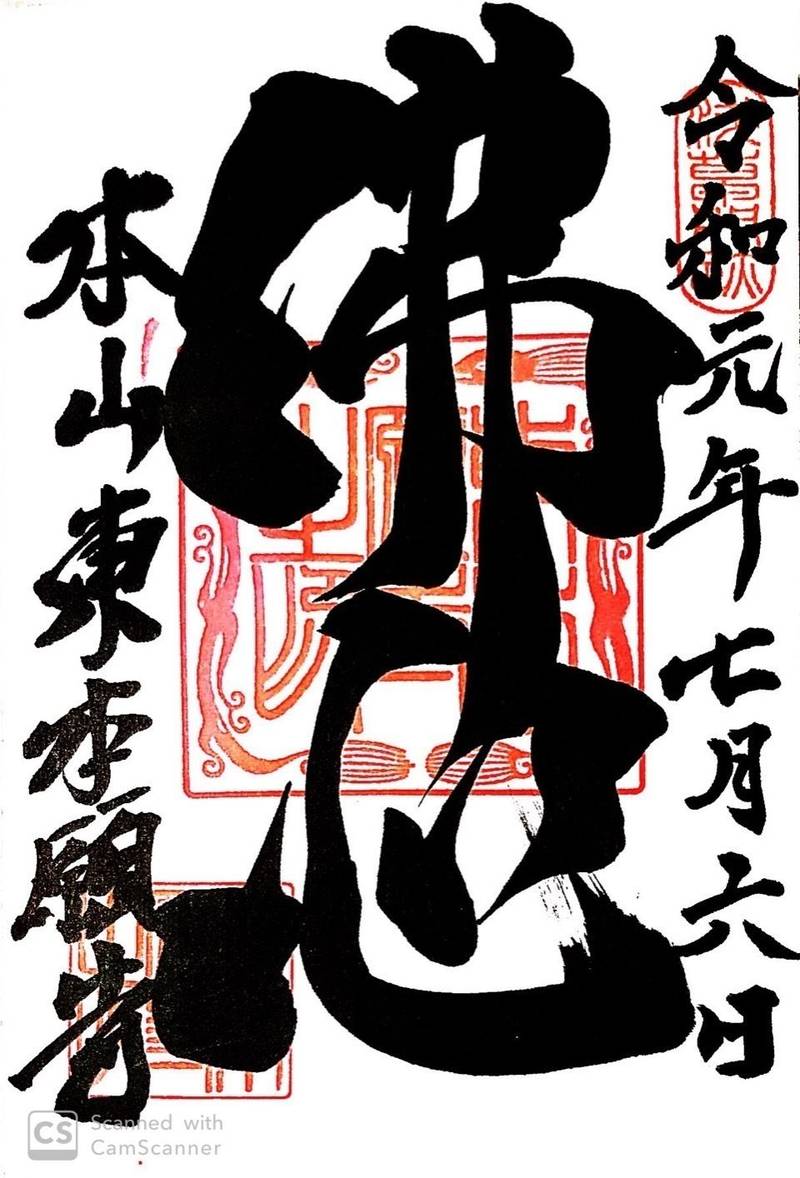 令和元年七月六日
佛心
本山東本願寺
CS Scanned with
CamScanner